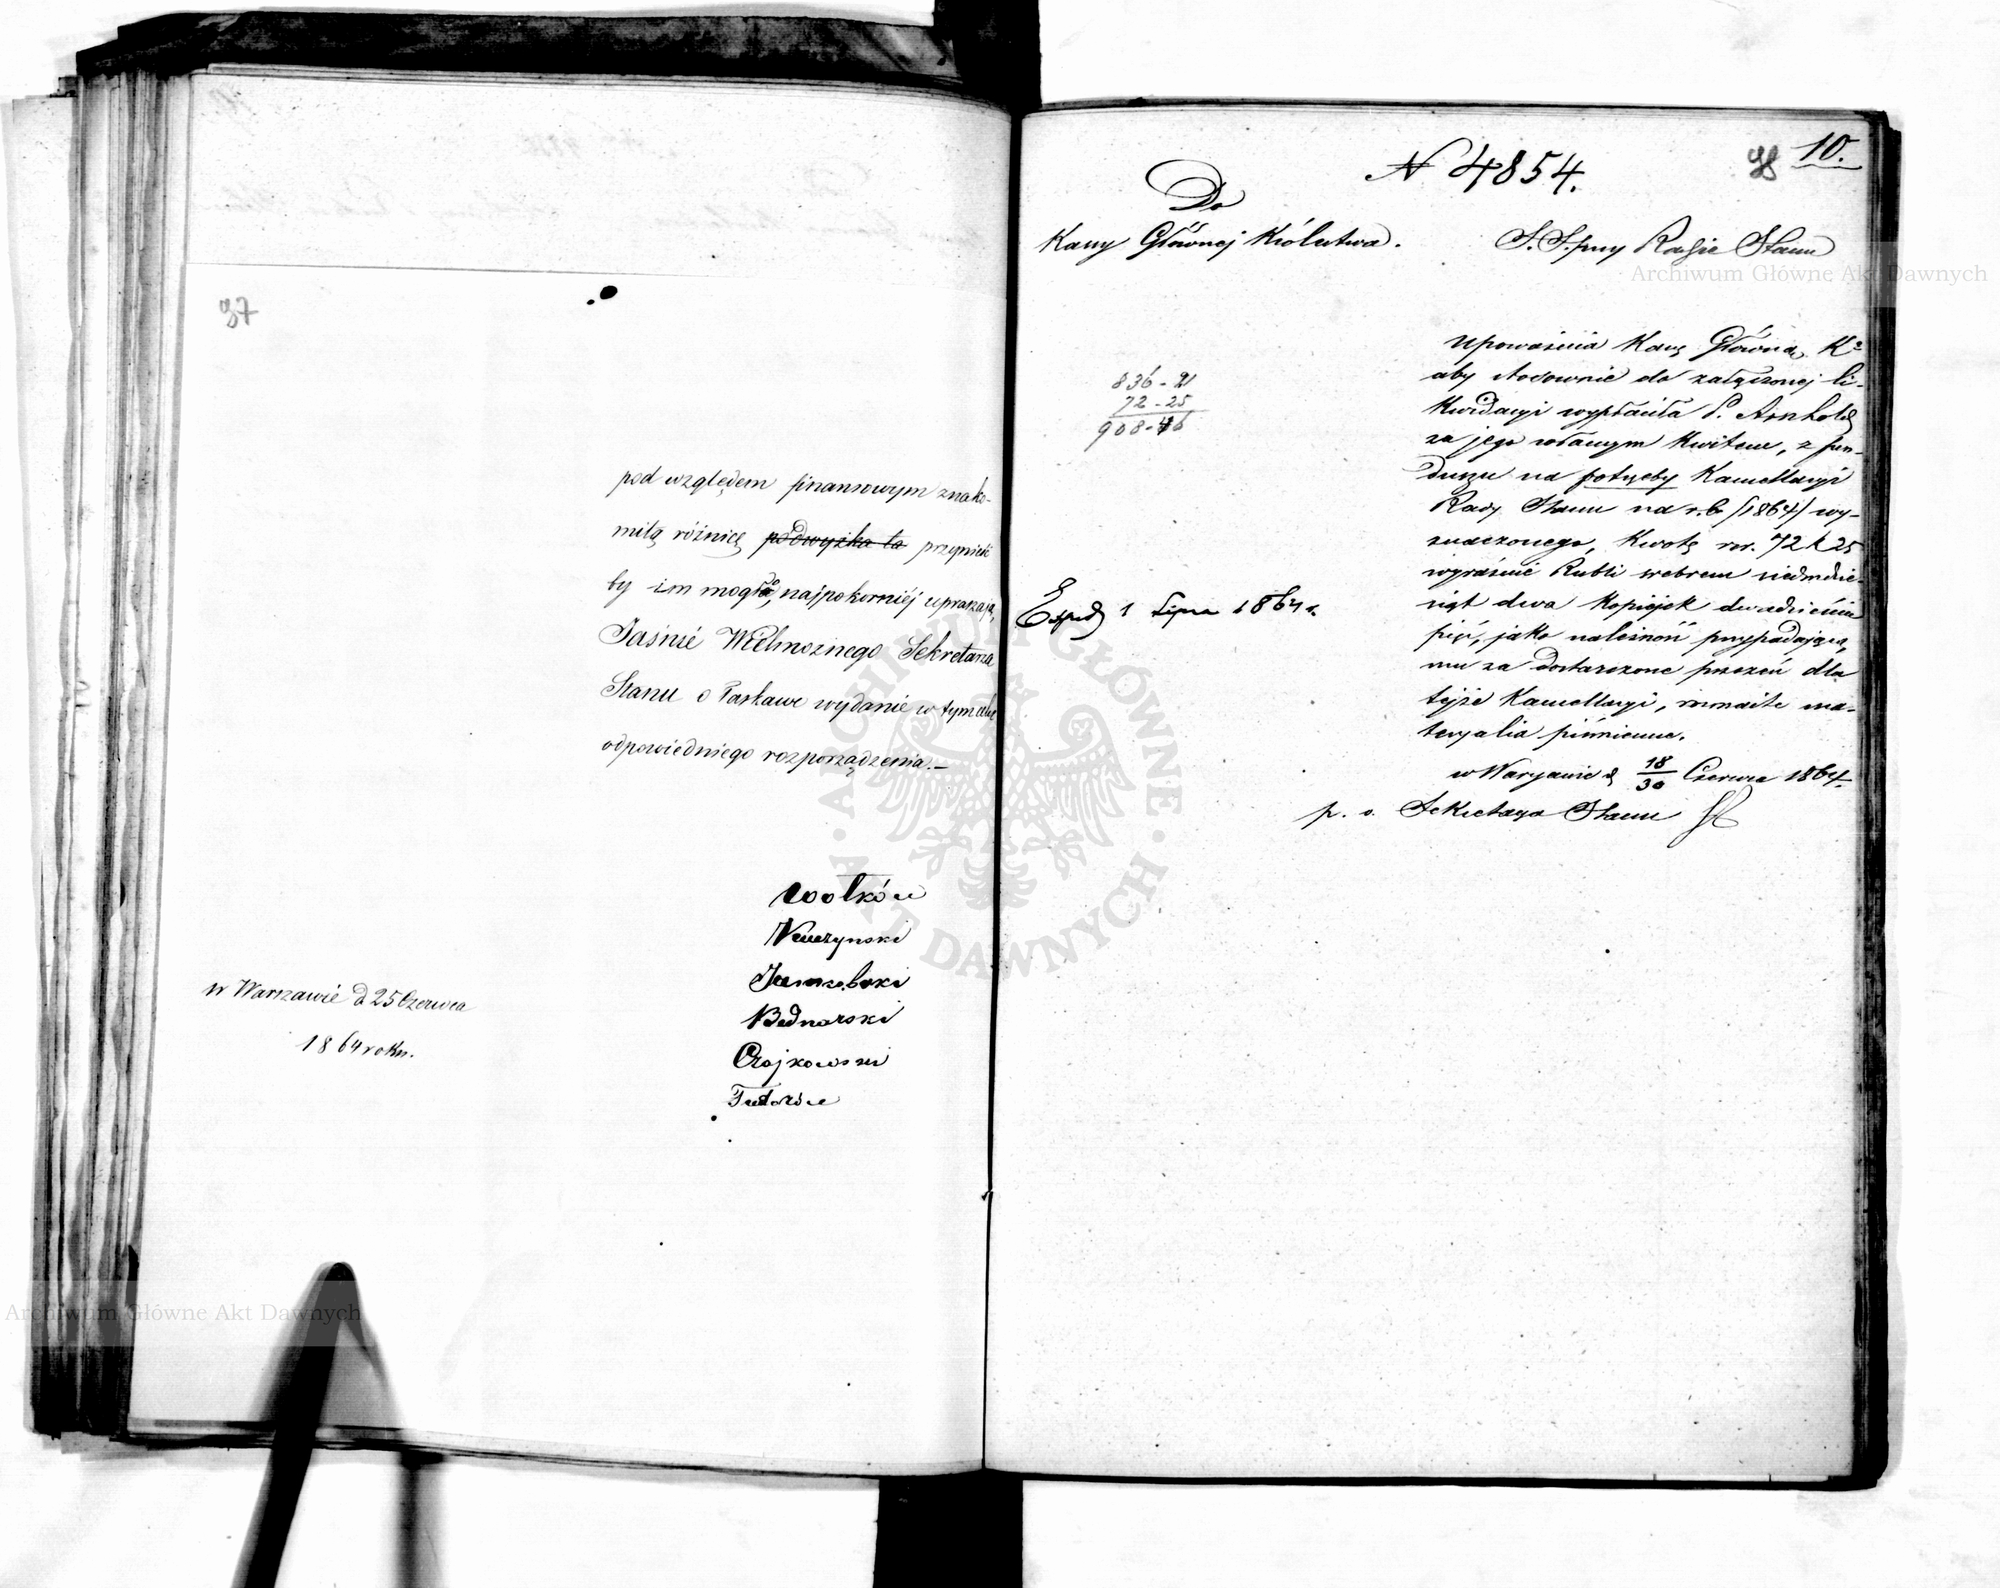 37
pod względem finansowym znako-
mitą różnicę podwyżka ta przynieść
by im mogło, najpokorniej upraszają
Jaśnie Wielmożnego Sekretarza
Stanu o łaskawe wydanie w tym celu
odpowiedniego rozporządzenia.—
Wołków
Bednarski
Czajkowski
w Warszawie d 25 Czerwca
1864 roku.
38 10.
N 4854.
Do
Kassy Głównej Królestwa.
S. S. przy Radzie Stanu
836-21
72-25
908-46
Upoważnia Kassę Główną K
aby stosownie do załączonej li-
kwidacyi wypłaciła P. Arnhold
za jego własnym kwitem, z fun-
duszu na potrzeby Kancellaryi
Rady Stanu na r.b /1864/ wy-
znaczonego, kwotę rsr. 72 k 25
wyraźnie Rubli srebrem siedmdzie-
siąt dwa kopiejek dwadzieścia
pięć, jako należność przypadającą
mu za dostarczone przezeń dla
tejże Kancellaryi, rozmaite ma-
teryalia piśmienne.
w Warszawie d 18/30 Czerwca 1864
p. o. Sekretarza Stanu
Exped 1 Lipca 1864 r.
ARCHIWUM GŁÓWNE
AKT DAWNYCH
Archiwum Główne Akt Dawnych
Archiwum Główne Akt Dawnych